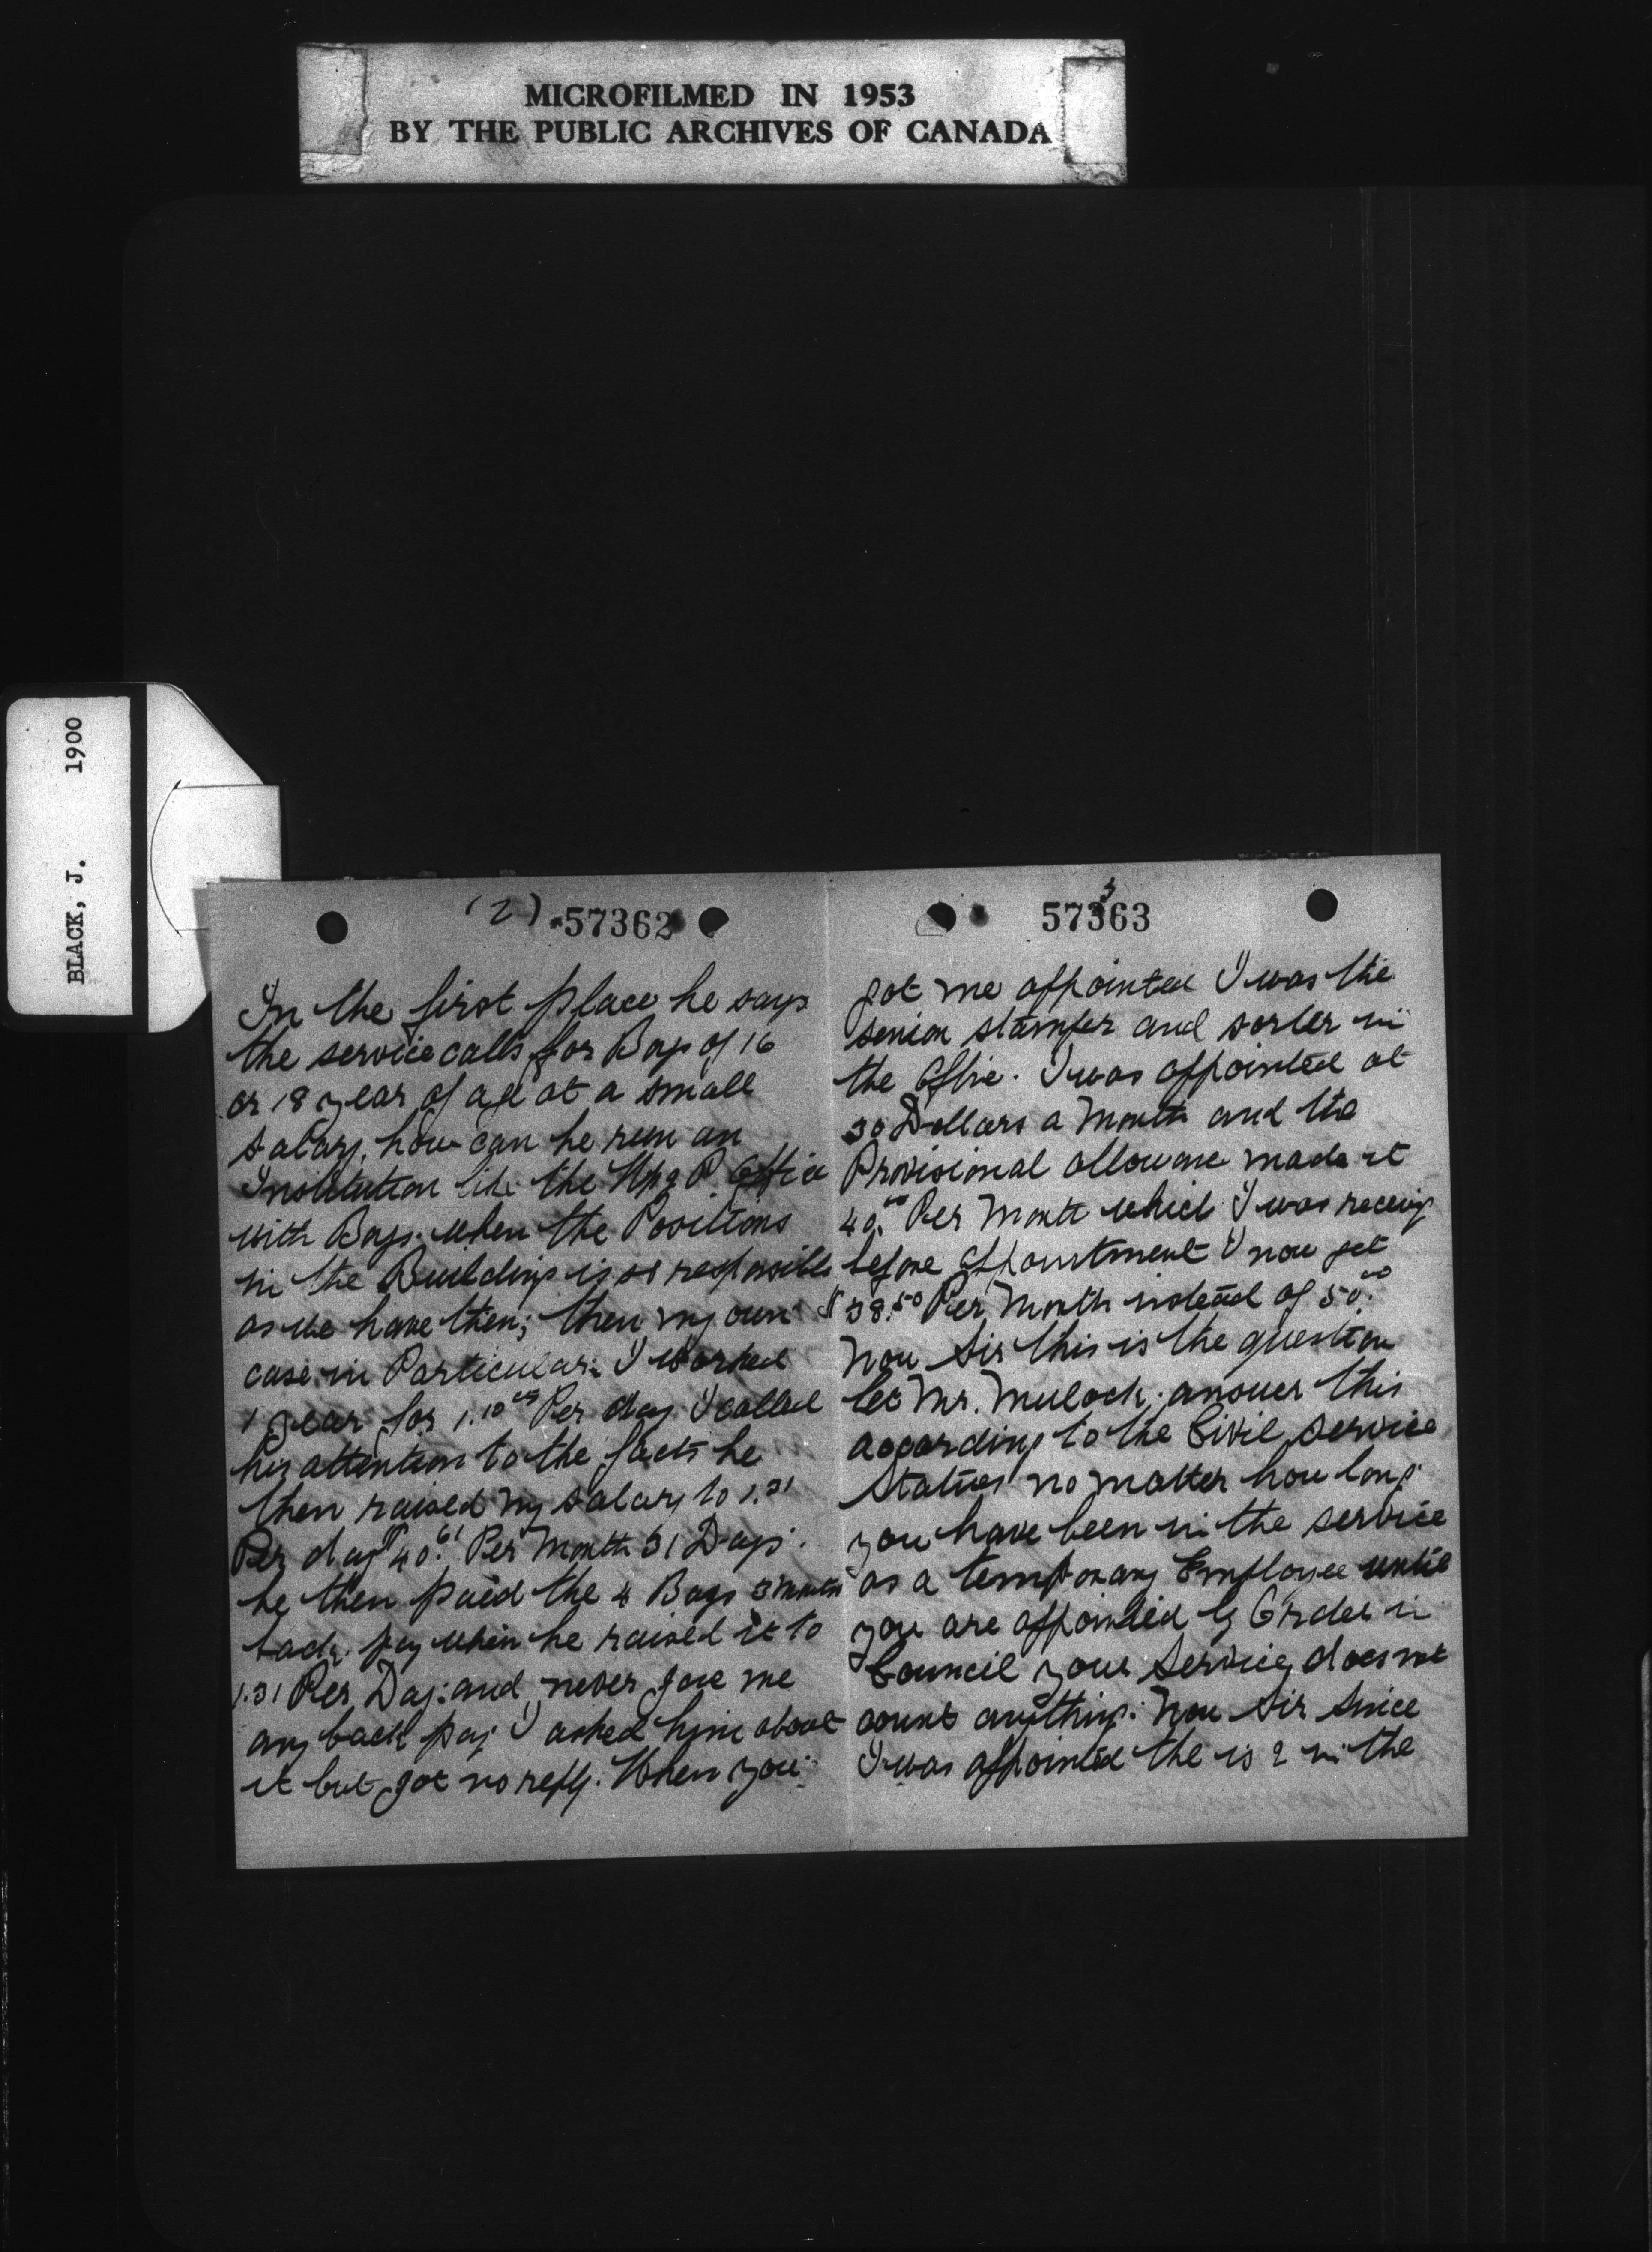 MICROFILMED IN 1953
BY THE PUBLIC ARCHIVES OF CANADA
BLACK, J. 1900
(2) 57362
In the first place he says
the service calls for Boys of 16
or 18 year of age at a small
salary, how can he run an
Institution like the Wpg P. Office
with Boys. when the Positions
in the Building is so responsible
as we have them; then my own
case in Particular: I worked
1 year for 1.10 Per day I called
his attention to the facts he
then raised my salary to 1.31
Per day $40.61 Per Month 31 Days.
he then paid the 4 Boys 3 months
back pay when he raised it to
1.31 Per Day: and never gave me
any back pay I asked him about
it but got no reply. When you
3
57363
got me appointed I was the
senior stamper and sorter in
the Office. I was appointed at
30 Dollars a Month and the
Provisional allowance made it
40.00 Per Month which I was receivg
before appointment I now get
$38.50 Per Month instead of 50.00
Now Sir this is the question
let Mr. Mulock; answer this
according to the Civil Service
Statues no matter how long
you have been in the service
as a temporary Employee until
you are appointed by Order in
Council your Service does not
count anything: Now Sir Since
I was appointed the is 2 in the